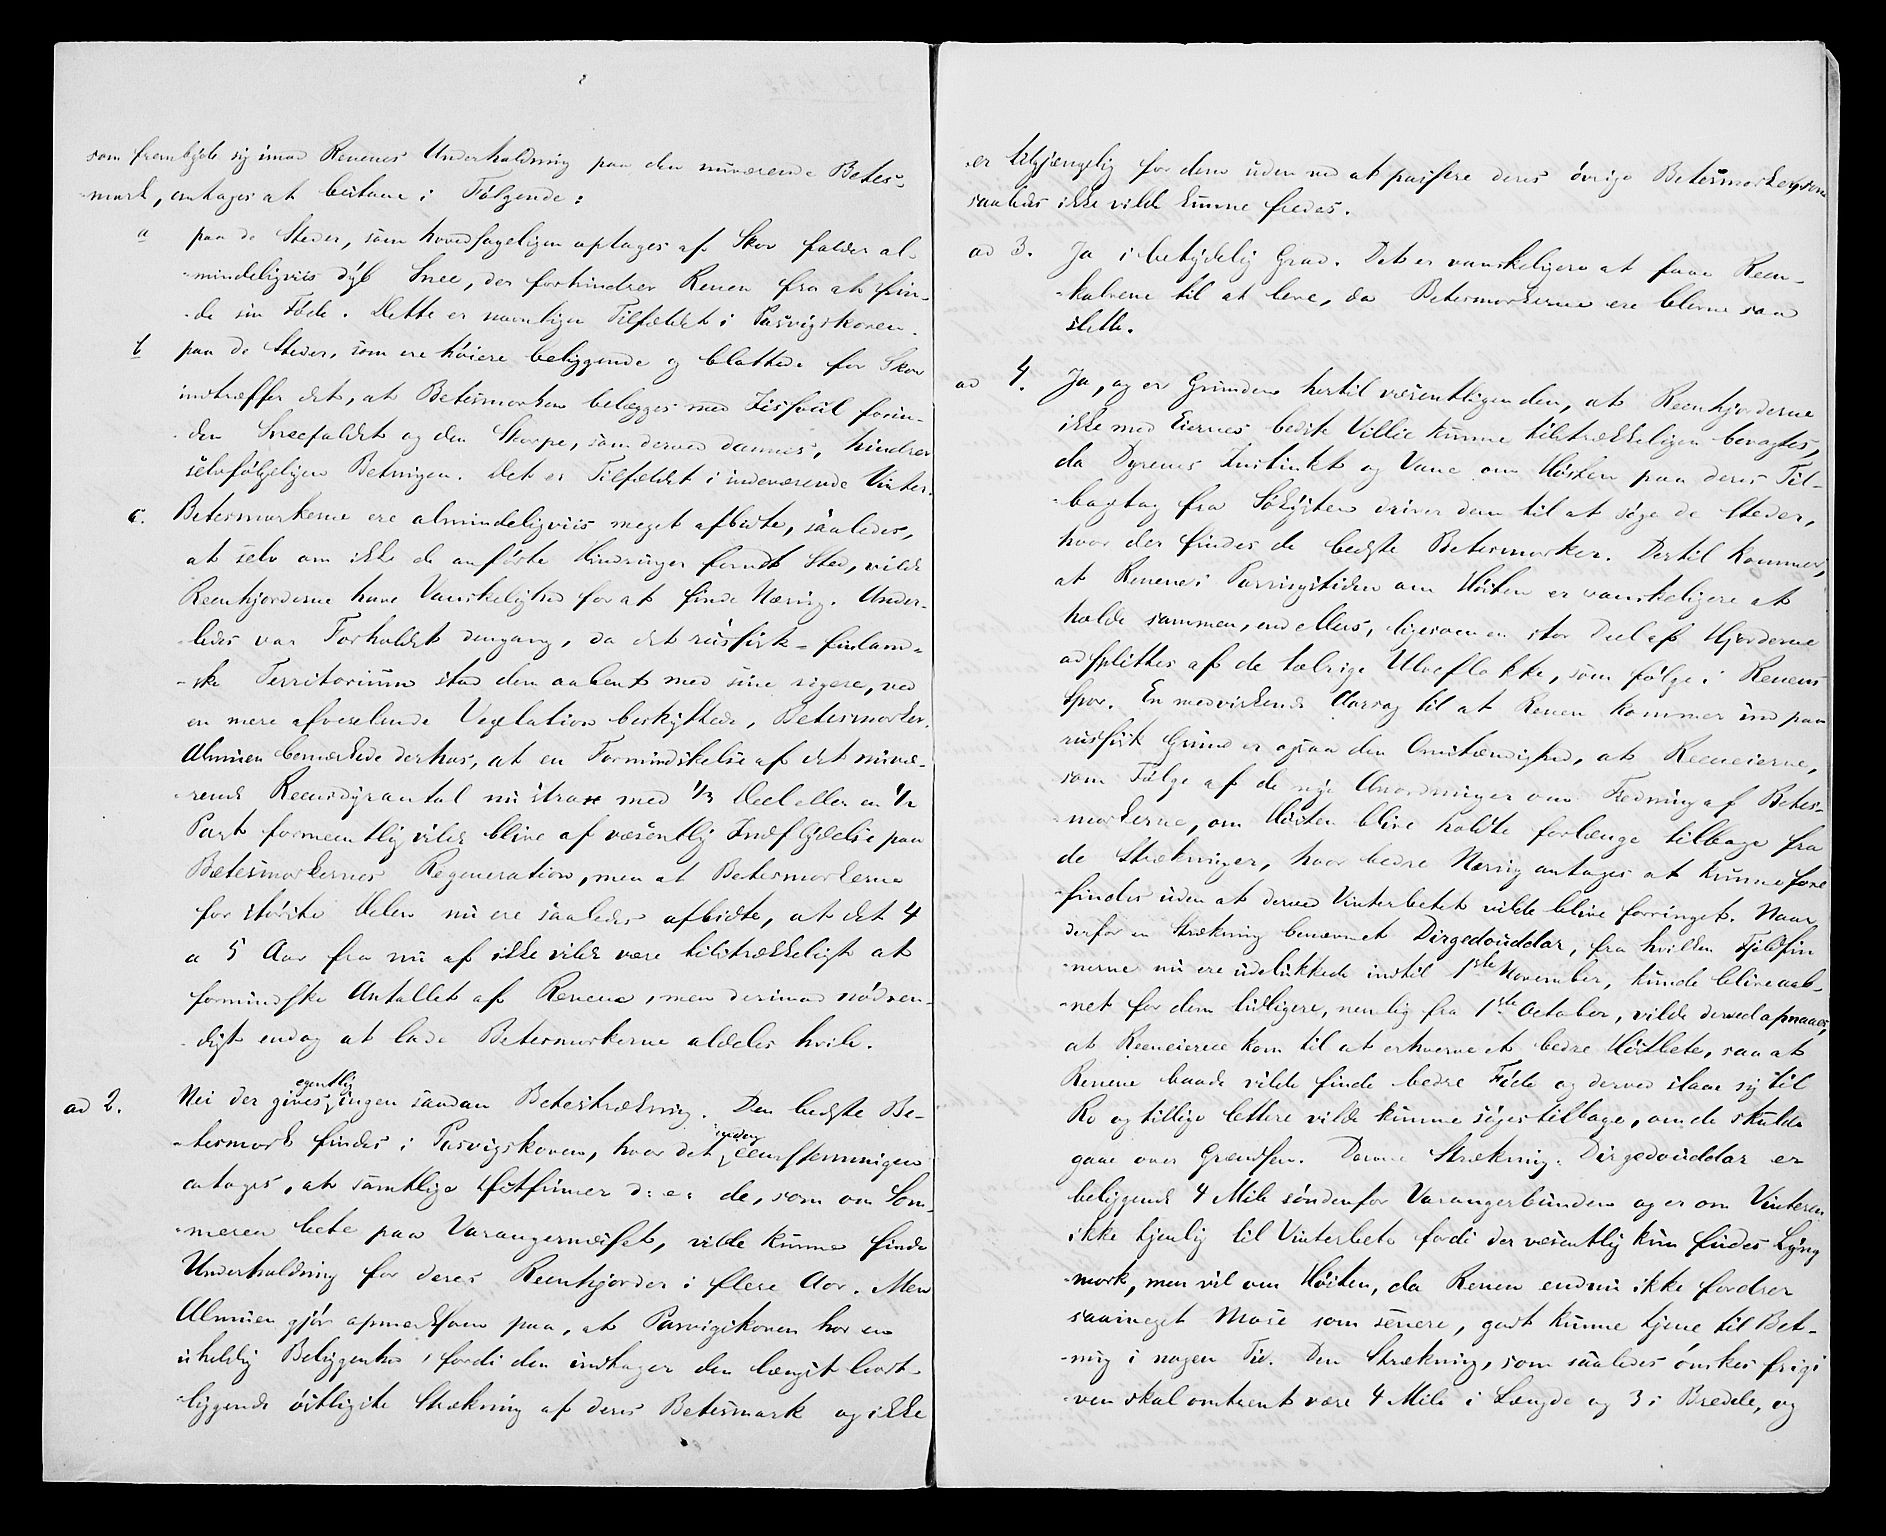 som frembyde sig imod Renenes Underholdning paa den nuværende Betes-
mark, antages at bestaae i Følgende:
a paa de Steder, som hovedsageligen optages af Skov falder al-
mindeligviis dyb Snee, der forhindrer Renen fra at fin-
de sin Føde. Dette er navnligen Tilfældet i Pasvigskoven.
b paa de Steder, som ere høiere beliggende og blottede for Skov
indtræffer det, at Betesmarken belægges med Iisslag forin-
den Sneefaldet og den Skorpe, som derved dannes, hindrer
selvfølgeligen Betningen. Det er Tilfældet i indeværende Vinter.
c. Betesmarkerne ere almindeligviis meget afbidte, saaledes,
at selv om ikke de anførte Hindringer fandt Sted, vilde
Reenhjorderne have Vanskelighed for at finde Næring. Ander-
ledes var Forholdet dengang, da det russisk-finland-
ske Territorium stod dem aabent med sine rigere, ved
en mere afvexlende Vegetation beskyttede, Betesmarker.
Almuen bemærkede derhos, at en Formindskelse af det nuvæ-
rende Reensdyrantal nu strax med 1/3 Deel eller en 1/2
Part formeentlig vilde blive af væsentlig Indflydelse paa
Betesmarkernes Regeneration, men at Betesmarkerne
for største Delen nu ere saaledes afbidte, at det 4
a 5 Aar fra nu af ikke vilde være tilstrækkeligt at
formindske Antallet af Renene, men derimod nødven-
digt endog at lade Betesmarkerne aldeles hvile.
ad 2. Nei der gives egentlig ingen saadan Betestrækning. Den bedste Be-
tesmark findes i Pasvigskoven, hvor det endog eenstemmigen
antages, at samtlige Østfinner d: e: de, som om Som-
meren bete paa Varangernæsset, vilde kunne finde
Underholdning for deres Reenhjorder i flere Aar. Men
Almuen gjør opmærksom paa, at Pasvigskoven har en
uheldig Beliggenhed, fordi den indtager den længst bort-
liggende østligste Strækning af deres Betesmark og ikke
er tilgjængelig for dem uden ved at passere deres øvrige Betesmarker, som
saaledes ikke vilde kunne fredes.
ad 3. Ja i betydelig Grad. Det er vanskeligere at faae Reen-
kalvene til at leve, da Betesmarkerne ere blevne saa
slette.
ad 4. Ja, og er Grunden hertil væsentligen den, at Reenhjorderne
ikke med Eiernes bedste Villie kunne tilstrækkeligen bevogtes,
da Dyrenes Instinkt og Vane om Høsten paa deres Til-
bagetog fra Søkysten driver dem til at søge de Steder,
hvor der findes de bedste Betesmarker. Dertil kommer,
at Renene i Parringstiden om Høsten er vanskeligere at
holde sammen, end ellers, ligesom en stor Deel af Hjorderne
adsplittes af de talrige Ulveflokke, som følge i Renens
Spor. En medvirkende Aarsag til at Renen kommer ind paa
russisk Grund er ogsaa den Omstændighed, at Reeneierne,
som Følge af de nye Anordninger om Fredning af Betes-
markerne, om Høsten blive holdte forlænge tilbage fra
de Strækninger, hvor bedre Næring antages at kunne fore
findes uden at derved Vinterbetet vilde blive forringet. Naar
derfor en Strækning benævnet Dirgedouddar, fra hvilken Fjeldfin
nerne nu ere udelukkede indtil 1ste November, kunde blive aab-
net for dem tidligere, nemlig fra 1ste October, vilde derved opnaaes,
at Reeneierne kom til at erhverve et bedre Høstbete, saa at
Renene baade vilde finde bedre Føde og derved slaae sig til
Ro og tillige lettere vilde kunne søges tilbage, om de skulde
gaae over Grændsen. Denne Strækning. Dirgedouddar er
beliggende 4 Mile søndenfor Varangerbunden og er om Vinteren
ikke tjenlig til Vinterbete fordi der væsentlig kun findes Lyng
mark, men vil om Høsten, da Renen endnu ikke fordrer
saameget Mose som senere, godt kunne tjene til Bet-
ning i nogen Tid. Den Strækning, som saaledes ønskes frigi
ven skal omtrent være 4 Mile i Længde og 3 i Bredde, og